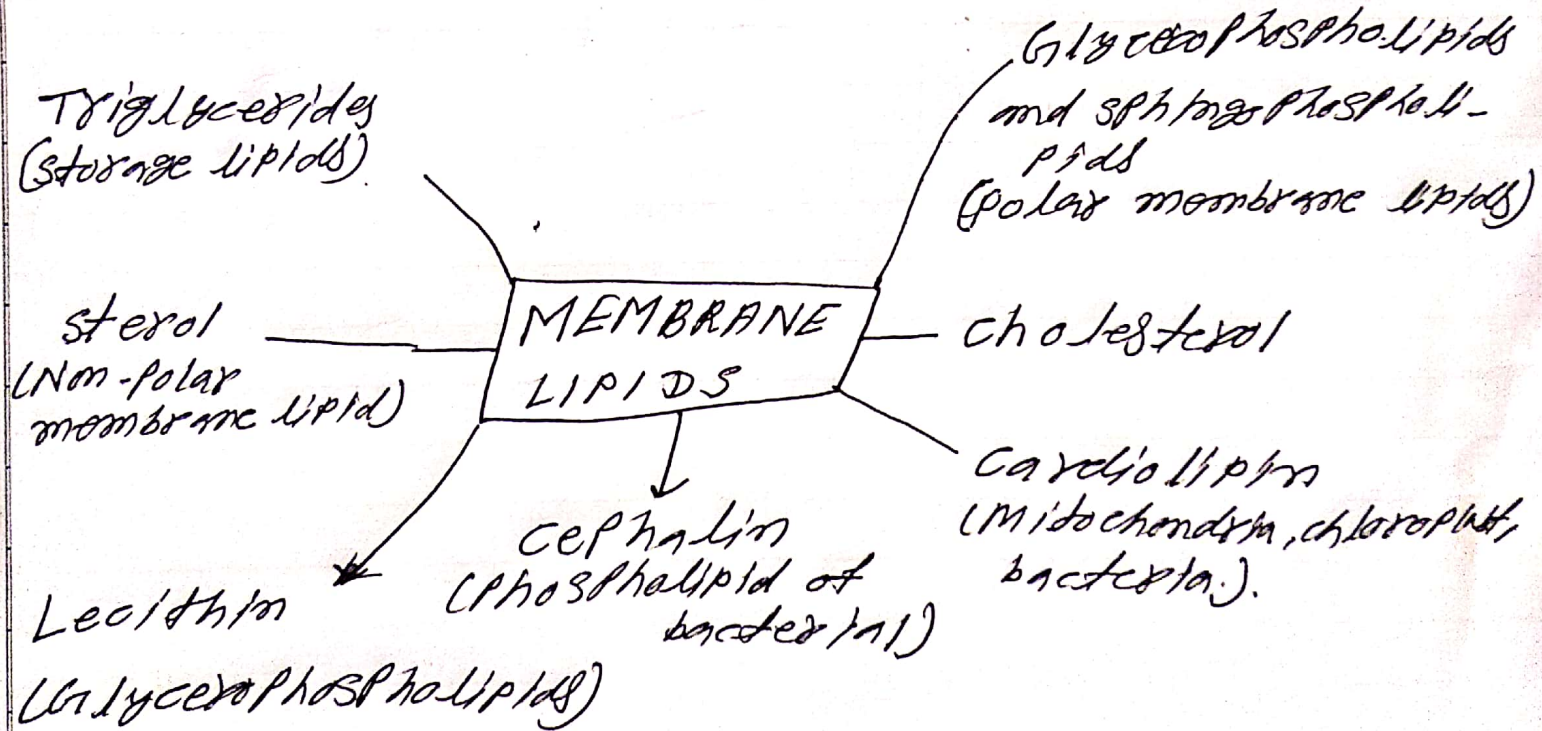 Triglycerides
(storage lipids)
Glycerophospholipids
and sphingophospholi-
pids
(polar membrane lipids)
sterol
(Non-polar
membrane lipid)
MEMBRANE
LIPIDS
cholesterol
cardiolipin
(Mitochondria, chloroplast,
bacteria.).
cephalin
(phospholipid of
bacterial)
Lecithin
(Glycerophospholipids)